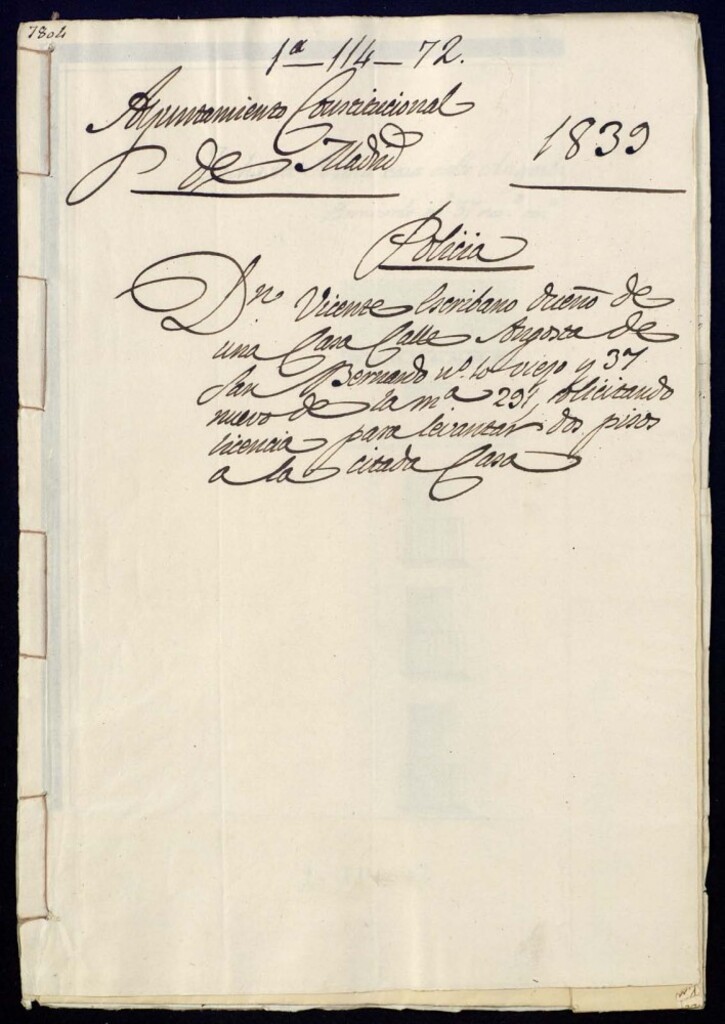 7804
1ª—114—72.
Ayuntamiento Constitucional
de Madrid
1839
Policia
Dn. Vicente Escribano dueño de
una Casa Calle Angosta de
San Bernardo nº. 10 viejo y 37
nuevo de la mª 291 solicitando
licencia para levantar dos pisos
a la citada Casa